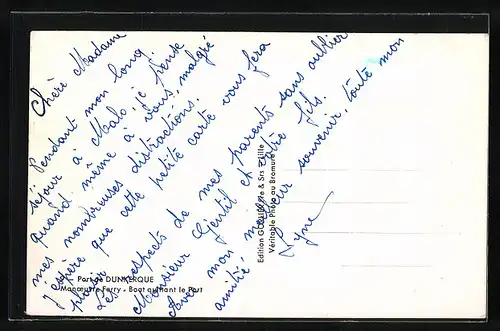 Chère Madame
Pendant mon long
séjour à Malo, je pense
quand même à vous, malgré
mes nombreuses distractions.
J'espère que cette petite carte vous fera
plaisir.
Les respects de mes parents sans oublier
Monsieur Gentil et votre fils.
Avec mon meilleur souvenir, toute mon
amitié.
Lyne
Port de DUNKERQUE
Manœuvre Ferry - Boat quittant le Port
Edition & Srs - Lille
Véritable Photo au Bromure